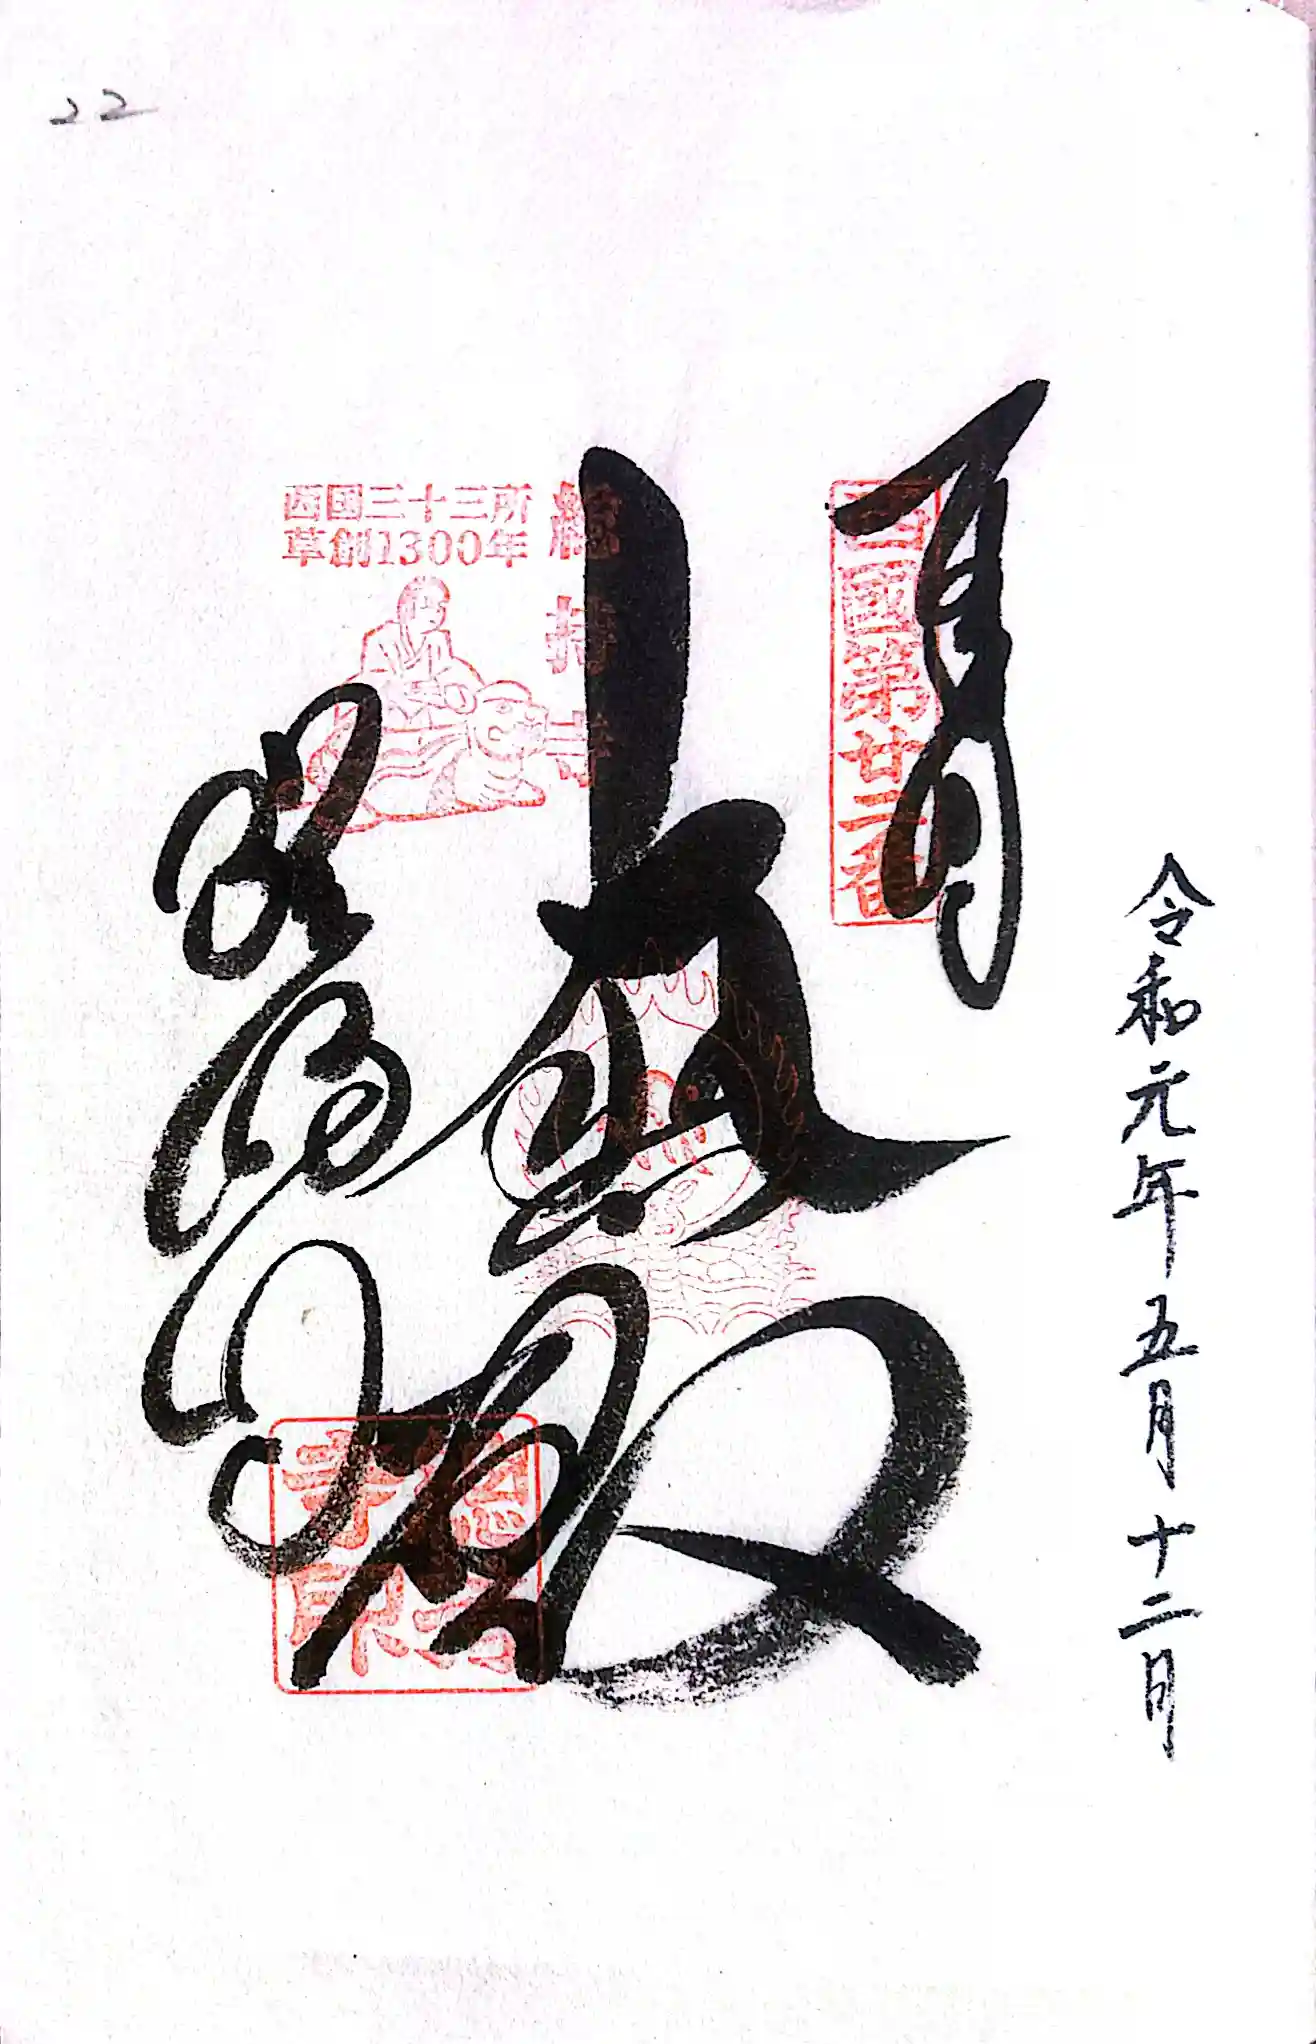 22
令和元年五月十二日
奉拝
西國第廿二番
大悲殿
総持寺
西国三十三所
草創1300年
総持寺印